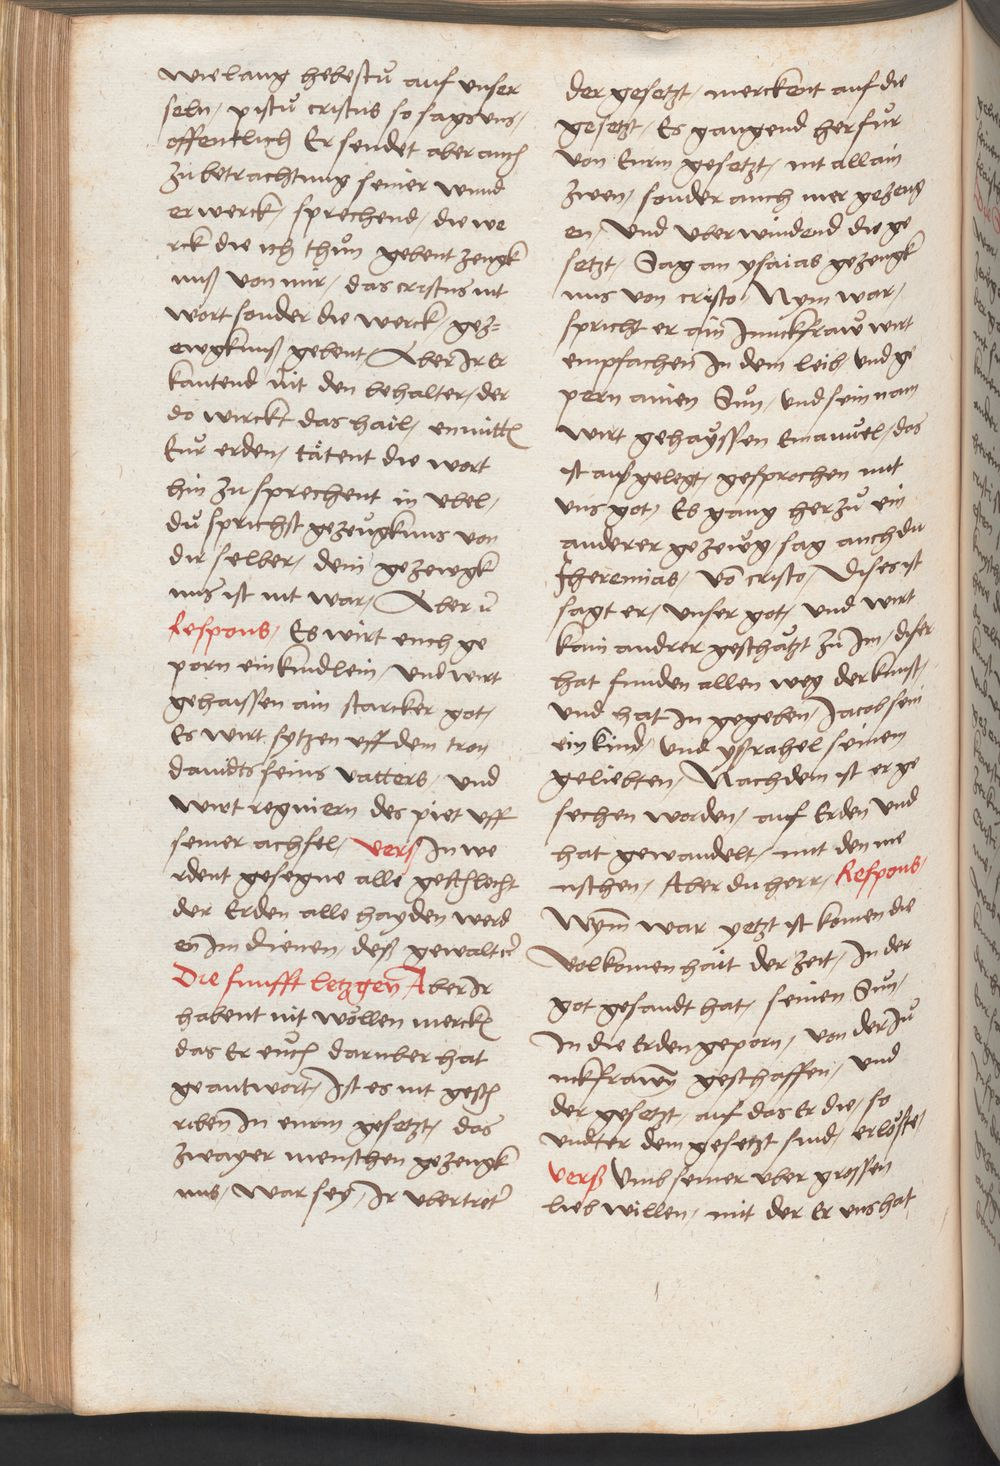 wie lang hebestu auf unser
seln / pistu cristus so sags uns /
offentlich Er sendet aber auch
zu betrachtung seiner wund
erwerck / sprechend / die we
rck die ich thun gebent zeugk
nuß von mir / das cristus nit
wort sonder die werck / gez=
ewgknuß gebent / Aber Ir Er
kantend nit den behalter / der
do wirckt das hail / enmittē
Eur erden / tätent die wort
hin zu sprechent in ubel /
du sprichst gezeugknus von
dir selber / dein gezewgk
nus ist nit war / Aber ir̄
Respons / Es wirt euch ge
porn ein kindlein / und wirt
gehaissen ain starcker got /
Es wirt sytzen uff dem tron
davidts seins vatters / und
wirt regniern des piet uff
seiner achsel / verß In we
rdent gesegne alle geschlecht
der Erden alle hayden werd
en Im dienen / deß gewalt ꝛc̄
Die funfft letzgen Aber Ir
habent nit wöllen merckē
das Er euch darüber hat
geantwort / Ist es nit gesch
riben In eurm gesetzt / das
zwayer menschen gezeugk
nus / war sey / Ir ubertretr̄
der gesetzt / merckent auf die
gesetzt / Es gangend herfur
von Eurm gesetzt / nit allain
zwen / sonder auch mer gezeug
en / und uberwindend die ge
setzt / Sag an ysaias gezeugk
nus von cristo / Nym war /
spricht er ain Junckfraw wirt
empfachen In dem leib und ge
pern ainen Sun / und sein nam
wirt gehayssen Emanuel / das
ist auß gelegt / gesprochen mit
uns got / Es gang herzu ein
anderer gezewg / sag auch du
Jheremias / võ cristo / Dises ist
sagt er / unser got / und wirt
kain andrer geschätzt zu Im / diser
hat funden allen weg der kunst /
und hat In gegeben / Jacob sein
ein kind / und yßrahel seinem
geliebten / Nach dem ist er ge
sechen worden / auf Erden und
hat gewandelt / mit den me
nschen / Aber du herr / Respons /
Nym̄ war yetzt ist komen die
volkomenhait der zeit / In der
got gesandt hat / seinen Sun /
In die Erden geporn / von der Ju
nckfrawē geschaffen / und
der gesetzt / auf das Er die / so
undter dem gesetzt sind / erlöste /
verß Umb seiner uber grossen
lieb willen / mit der Er uns hat